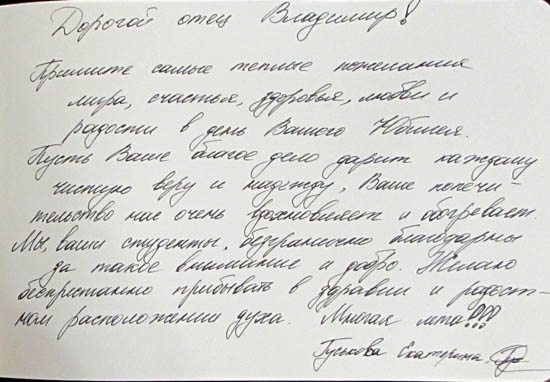 Дорогой отец Владимир!
Примите самые теплые пожелания
мира, счастья, здоровья, любви и
радости в день Вашего Юбилея.
Пусть Ваше благое дело дарит каждому
чистую веру и надежду, Ваше попечи-
тельство нас очень вдохновляет и обогревает.
Мы, ваши студенты, безгранично благодарны
за такое внимание и добро. Желаю
беспристанно прибывать в здравии и радост-
ном расположении духа. Многая лета!!!
Гуськова Екатерина.